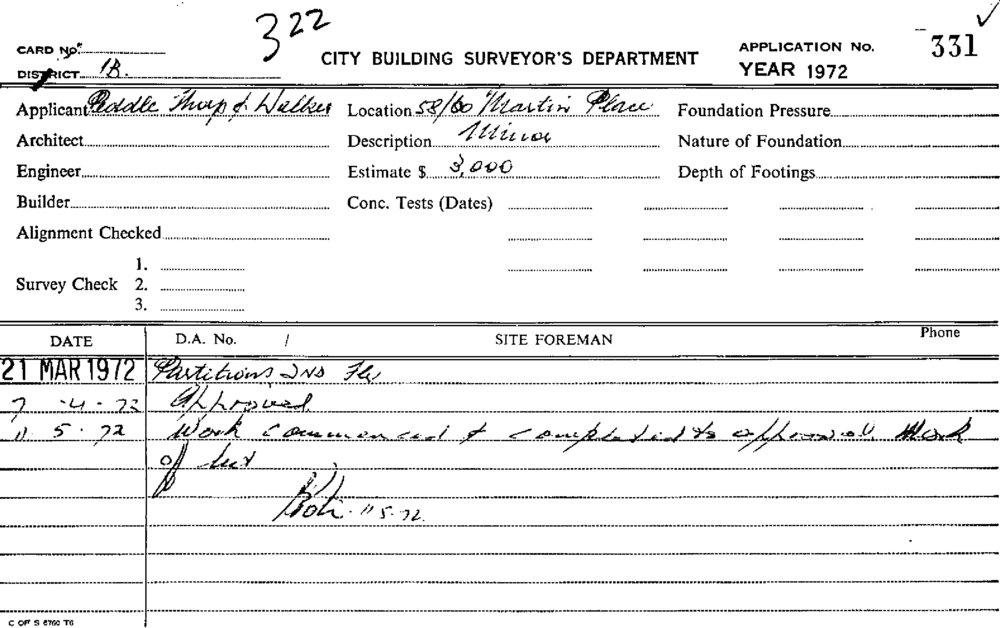 322
CARD No. CITY BUILDING SURVEYOR'S DEPARTMENT APPLICATION No. 331
DISTRICT 1B. YEAR 1972
Applicant Peddle Thorp & Walker Location 58/60 Martin Place Foundation Pressure
Architect Description Minor Nature of Foundation
Engineer Estimate $ 3,000 Depth of Footings
Builder Conc. Tests (Dates)
Alignment Checked
1.
Survey Check 2.
3.
DATE D.A. No. / SITE FOREMAN Phone
21 MAR 1972 Partitions 2ND Flr
7 -4-72 Approved
11. 5. 72 Work commenced & completed to approval. Work
of
11.5.72.
C OF S 6760 T6